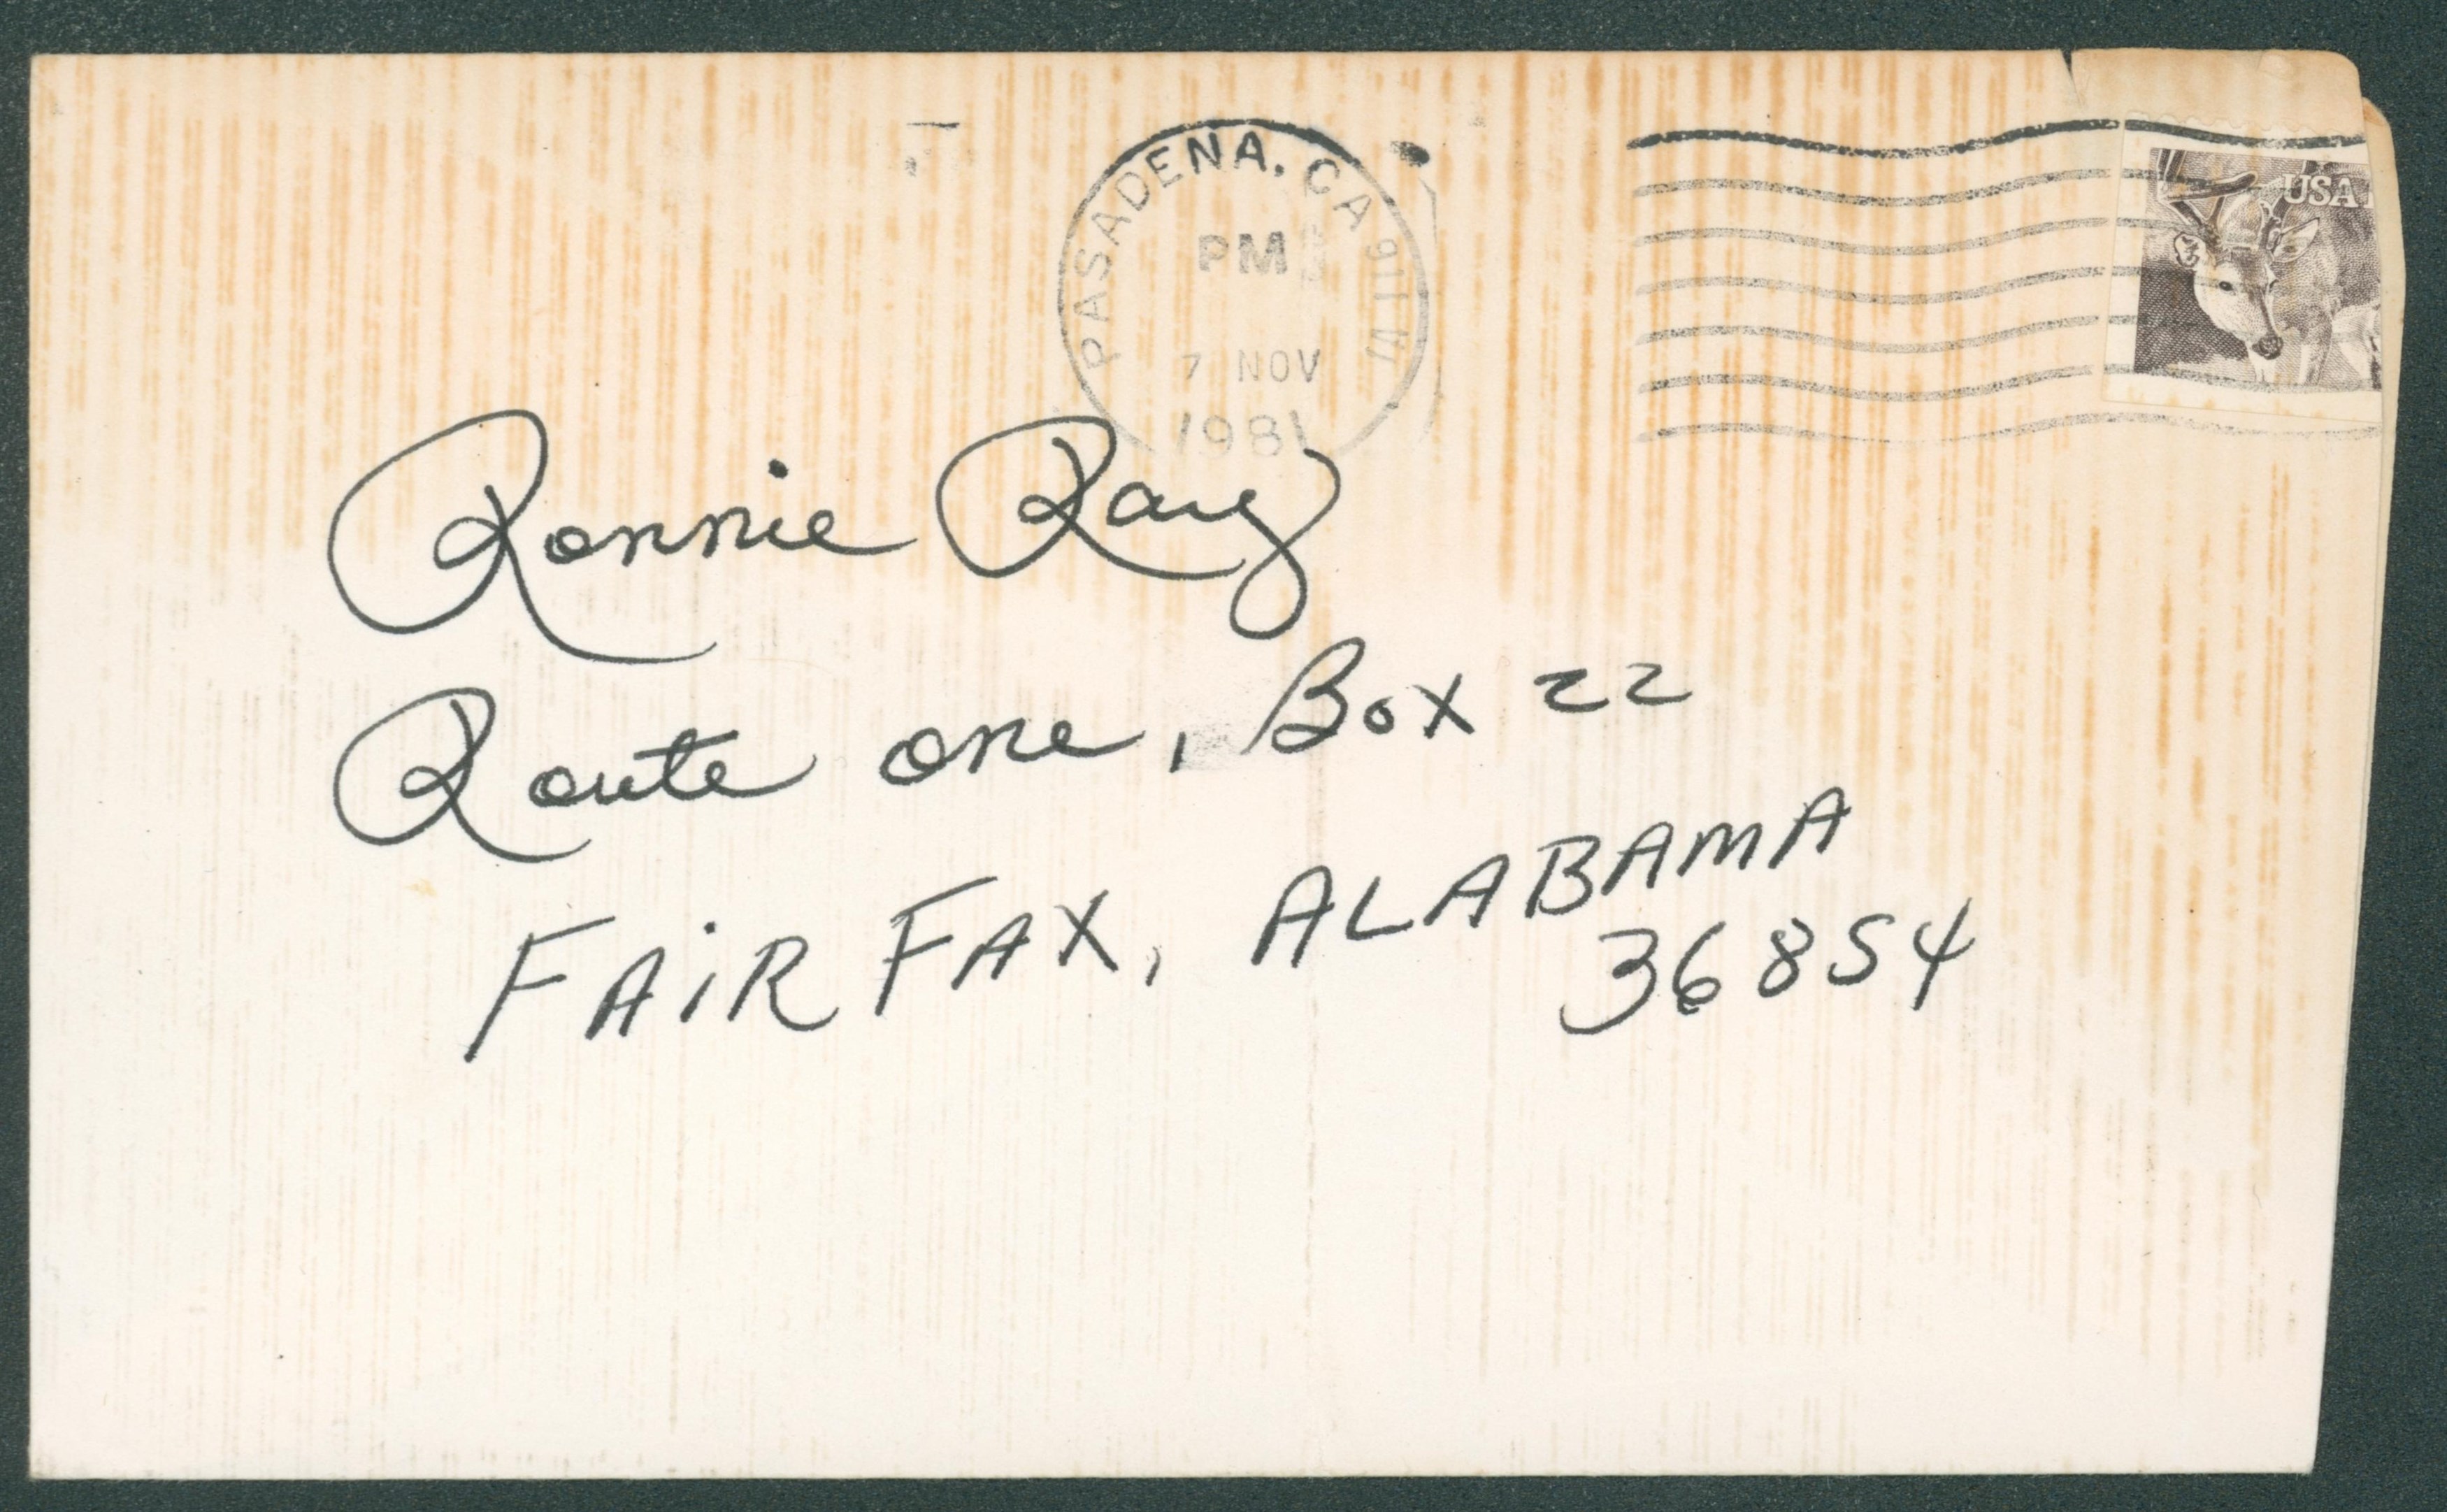 PASADENA, CA 911
PM
7 NOV
1981
USA
Ronnie Ray
Route one, Box 22
FAiRFAX, ALABAMA
36854